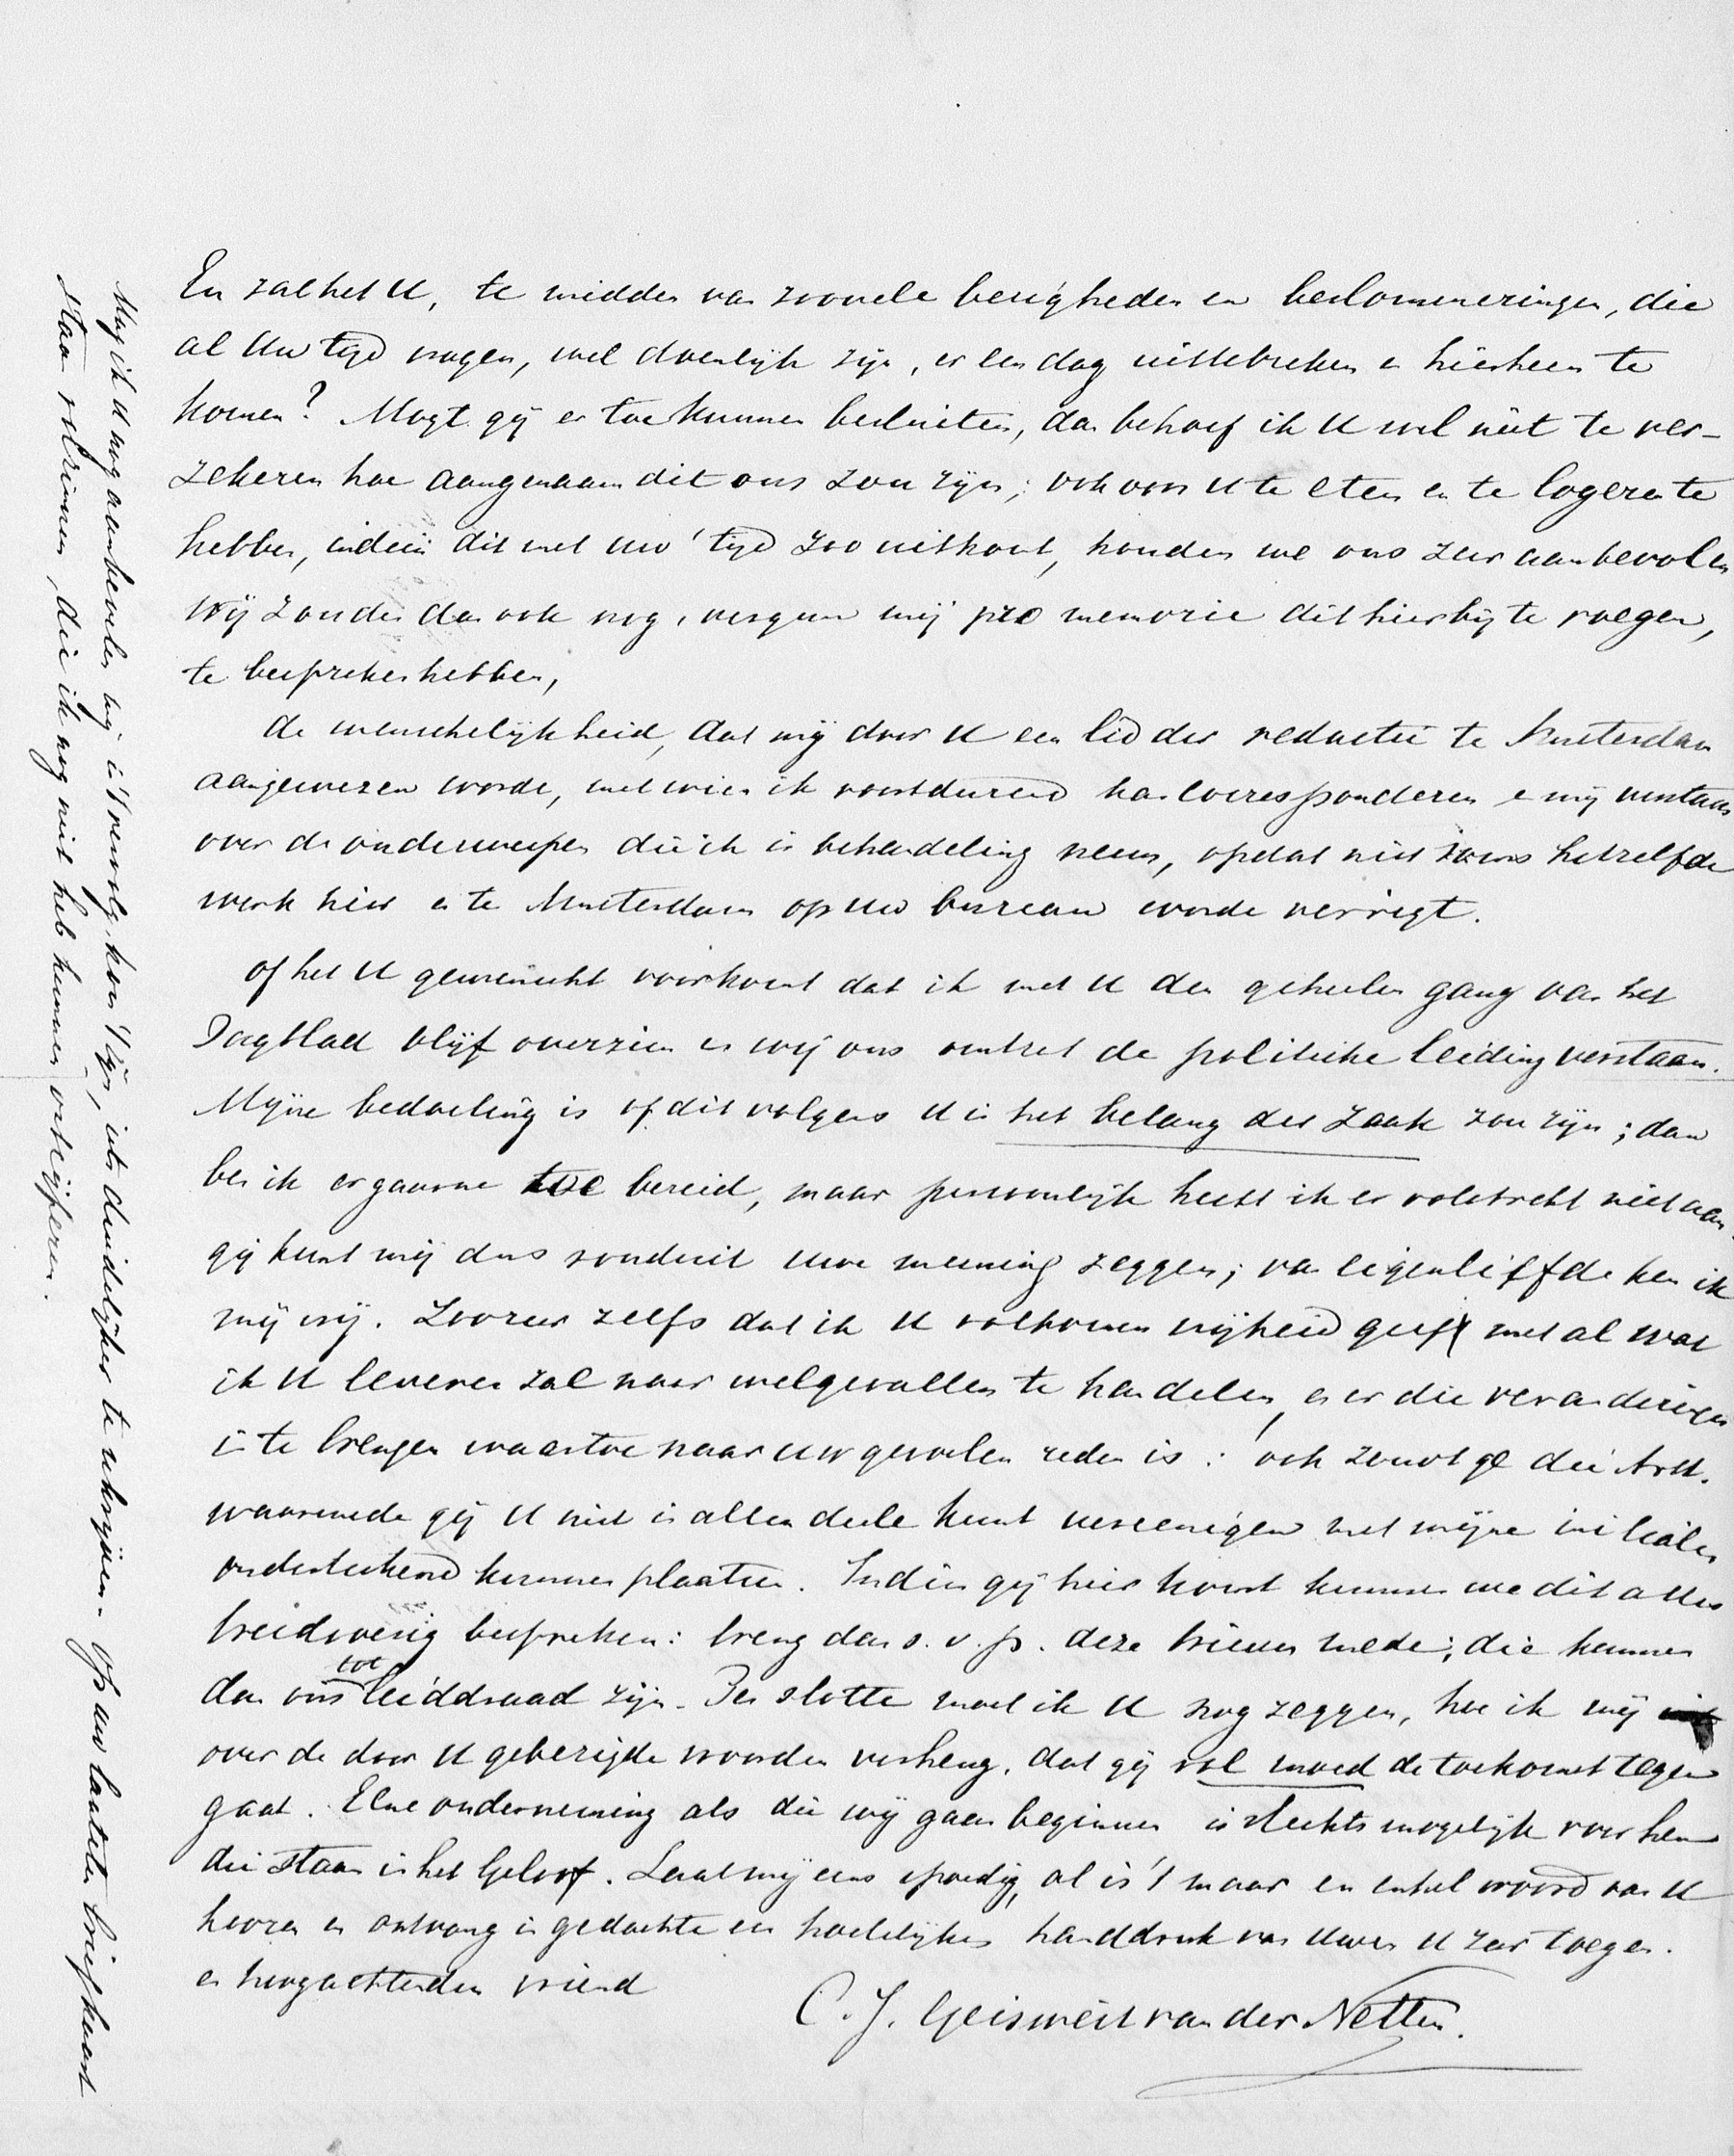 En zal het U, te midden van zoovele bezigheden en beslommeringen, die
al Uw tijd vragen, wel doenlijk zijn, er een dag uittebreken en hierheen te
komen? Mogt gij er toe kunnen besluiten, dan behoef ik U wel niet te ver-
zekeren hoe aangenaam dit ons zou zijn; ook om U te eten en te logeren te
hebben, indien dit met uw tijd zoo uitkomt, houden we ons zeer aanbevolen
Wij zouden dan ook nog, vergun mij pro memorie dit hierbij te voegen,
te bespreken hebben,
de wenschelijkheid, dat mij door U een lid der redactie te Amsterdam
aangewezen worde, met wien ik voortdurend kan corresponderen en mij verstaan
over de onderwerpen die ik in behandeling neem, opdat niet soms hetzelfde
werk hier en te Amsterdam op uw bureau worde verrigt.
of het U gewenscht voorkomt dat ik met U den geheelen gang van het
Dagblad blijf overzien en wij ons omtrent de politieke leiding verstaan.
Mijne bedoeling is of dit volgens U in het belang der zaak zou zijn; dan
ben ik er gaarne toe bereid, maar persoonlijk hecht ik er volstrekt niet aan.
gij kunt mij dus ronduit uwe meening zeggen; van eigenliefde ken ik
mij vrij. Zoozeer zelfs dat ik U volkomen vrijheid geef met al wat
ik U leveren zal naar welgevallen te handelen, en er die veranderingen
in te brengen waartoe naar uw gevoelen reden is: ook zoudt ge die Artt.
waarmede gij U niet in allen deele kunt vereenigen met mijne initialen
onderteekend kunnen plaatsen. Indien gij hier komt kunnen we dit alles
breedvoerig bespreken: breng dan s.v.p. deze brieven mede; die kunnen
dan ons tot leiddraad zijn. Ten slotte moet ik U nog zeggen, hoe ik mij
over de door U gebezigde woorden verheug, dat gij vol moed de toekomst tegen
gaat. Eene onderneming als die wij gaan beginnen is slechts mogelijk voor hen
die staan in het Geloof. Laat mij eens spoedig, al is 't maar een enkel woord van U
hooren en ontvang in gedachte een hartelijken handdruk van Uwen U zeer toegen.
en hoogachtenden vriend
C. J. Geisweit van der Netten.
Mag ik U nog aanbevelen mij in 't vervolg, kon 't zijn, iets duidelijker te schrijven. Op uw laatste briefkaart
staan volzinnen, die ik nog niet heb kunnen ontcijferen.